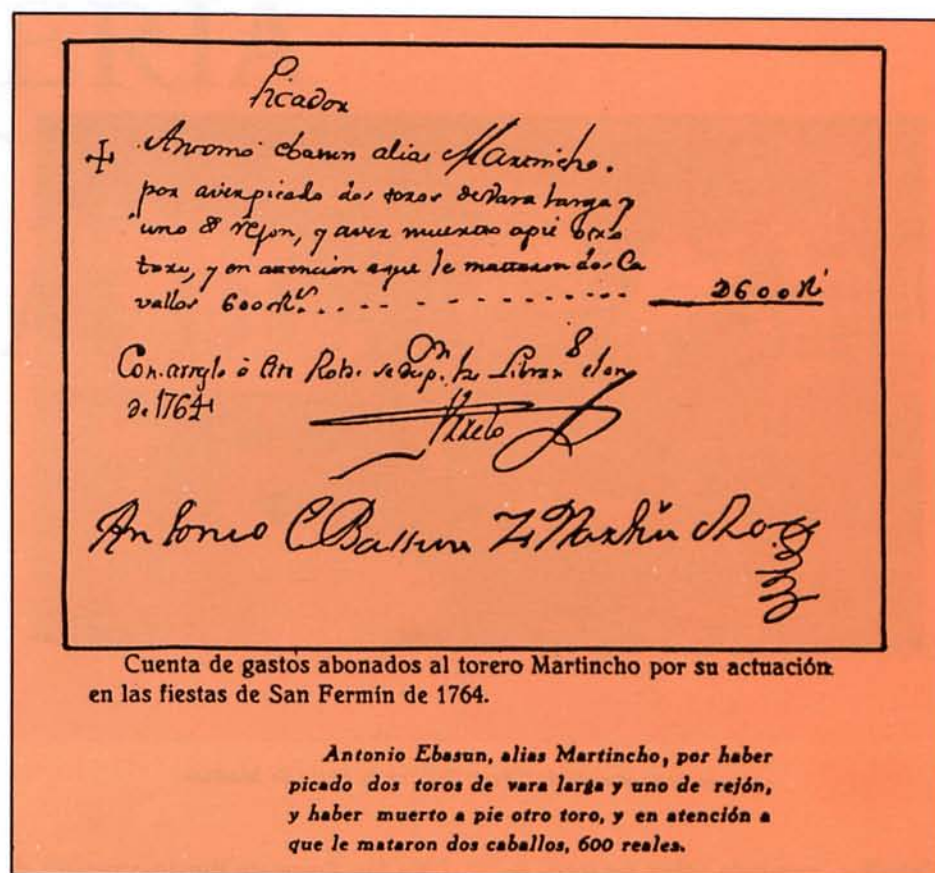 Picador
Antonio ebasun alias Martincho.
por aver picado dos toros de Vara larga y
uno de rejon, y aver muerto apie otro
toro, y en atencion aque le mattaron dos Ca
vallos 600 Rs. - - - - - - - - - - - - D600R
Con arreglo ô
de 1764
Antonio EBassun Martincho
Cuenta de gastos abonados al torero Martincho por su actuación
en las fiestas de San Fermín de 1764.
Antonio Ebasun, alias Martincho, por haber
picado dos toros de vara larga y uno de rejón,
y haber muerto a pie otro toro, y en atención a
que le mataron dos caballos, 600 reales.